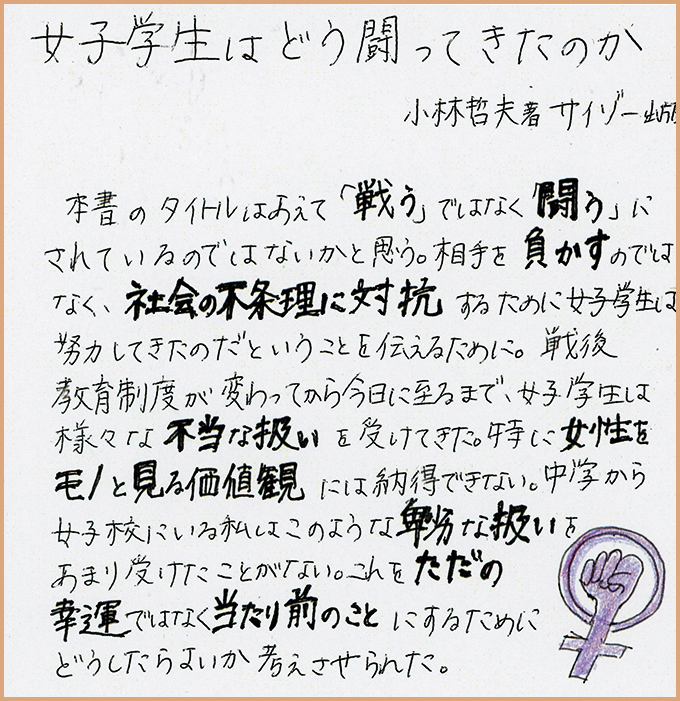 女子学生はどう闘ってきたのか
小林哲夫著 サイゾー出版
本書のタイトルはあえて「戦う」ではなく「闘う」に
されているのではないかと思う。相手を負かすのでは
なく、社会の不条理に対抗するために女子学生は
努力してきたのだということを伝えるために。戦後
教育制度が変わってから今日に至るまで、女子学生は
様々な不当な扱いを受けてきた。特に女性を
モノと見る価値観には納得できない。中学から
女子校にいる私はこのような な扱いを
あまり受けたことがない。これをただの
幸運ではなく当たり前のことにするために
どうしたらよいか考えさせられた。